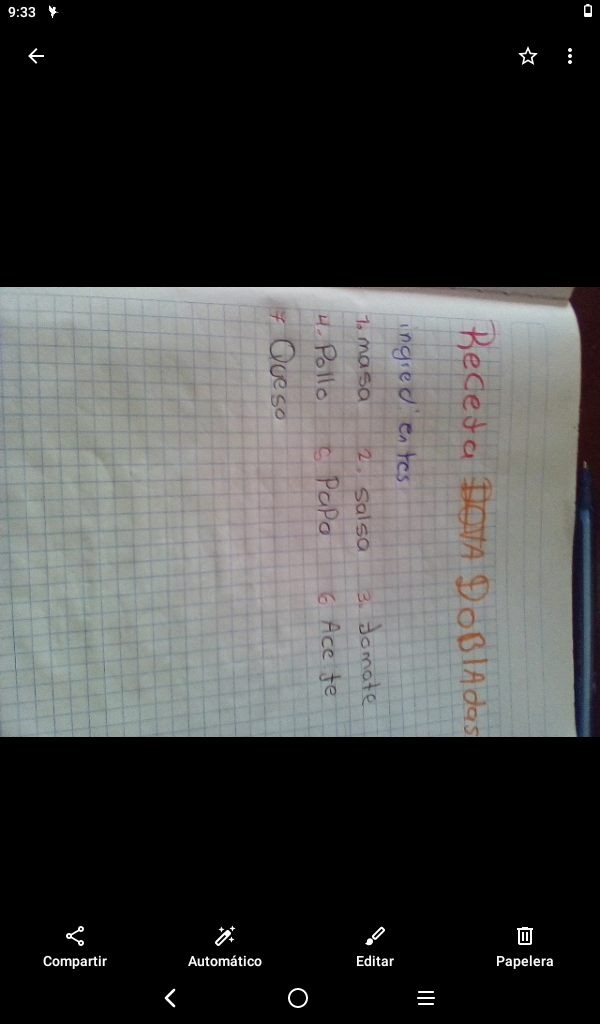 9:33
Receta DoBlAdas
ingredientes
1. masa 2. Salsa 3. Jomate
4. Pollo 5 PaPa 6 Aceite
7 Queso
Compartir Automático Editar Papelera